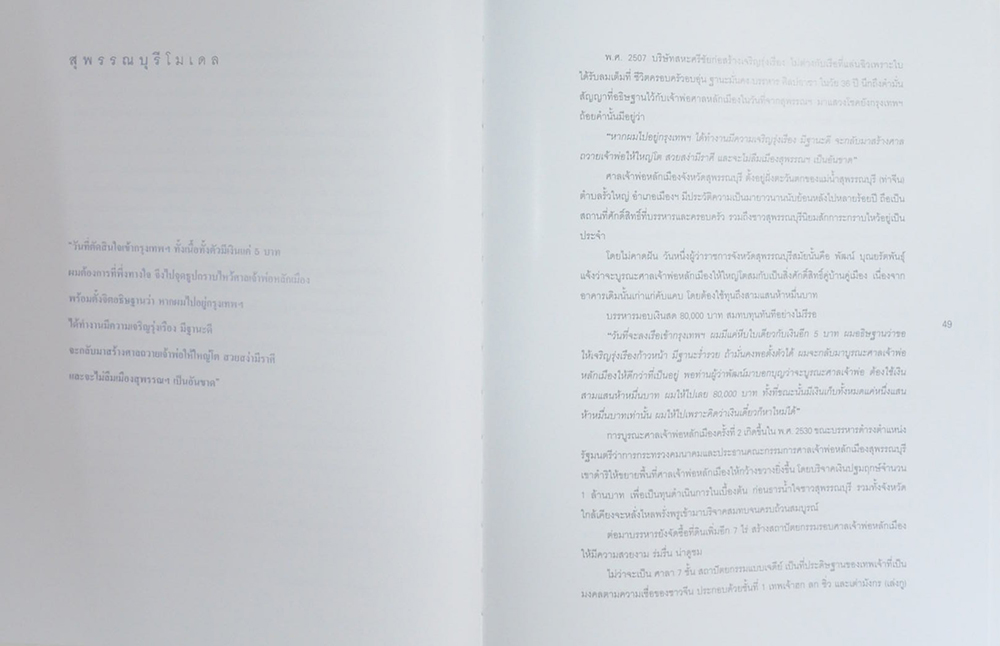 สุพรรณบุรีโมเดล
"วันที่ตัดสินใจเข้ากรุงเทพฯ ทั้งเนื้อทั้งตัวมีเงินแค่ 5 บาท
ผมต้องการที่พึ่งทางใจ จึงไปจุดธูปกราบไหว้ศาลเจ้าพ่อหลักเมือง
พร้อมตั้งจิตอธิษฐานว่า หากผมไปอยู่กรุงเทพฯ
ได้ทำงานมีความเจริญรุ่งเรือง มีฐานะดี
จะกลับมาสร้างศาลถวายเจ้าพ่อให้ใหญ่โต สวยสง่ามีราศี
และจะไม่ลืมเมืองสุพรรณฯ เป็นอันขาด"
พ.ศ. 2507 บริษัทสหะศรีชัยก่อสร้างเจริญรุ่งเรือง ไม่ต่างกับเรือที่แล่นฉิวเพราะใบ
ได้รับลมเต็มที่ ชีวิตครอบครัวอบอุ่น ฐานะมั่นคง บรรหาร ศิลปอาชา ในวัย 36 ปี นึกถึงคำมั่น
สัญญาที่อธิษฐานไว้กับเจ้าพ่อศาลหลักเมืองในวันที่จากสุพรรณฯ มาแสวงโชคยังกรุงเทพฯ
ถ้อยคำนั้นมีอยู่ว่า
"หากผมไปอยู่กรุงเทพฯ ได้ทำงานมีความเจริญรุ่งเรือง มีฐานะดี จะกลับมาสร้างศาล
ถวายเจ้าพ่อให้ใหญ่โต สวยสง่ามีราศี และจะไม่ลืมเมืองสุพรรณฯ เป็นอันขาด"
ศาลเจ้าพ่อหลักเมืองจังหวัดสุพรรณบุรี ตั้งอยู่ฝั่งตะวันตกของแม่น้ำสุพรรณบุรี (ท่าจีน)
ตำบลรั้วใหญ่ อำเภอเมืองฯ มีประวัติความเป็นมายาวนานนับย้อนหลังไปหลายร้อยปี ถือเป็น
สถานที่ศักดิ์สิทธิ์ที่บรรหารและครอบครัว รวมถึงชาวสุพรรณบุรีนิยมสักการะกราบไหว้อยู่เป็น
ประจำ
โดยไม่คาดฝัน วันหนึ่งผู้ว่าราชการจังหวัดสุพรรณบุรีสมัยนั้นคือ พัฒน์ บุณยรัตพันธุ์
แจ้งว่าจะบูรณะศาลเจ้าพ่อหลักเมืองให้ใหญ่โตสมกับเป็นสิ่งศักดิ์สิทธิ์คู่บ้านคู่เมือง เนื่องจาก
อาคารเดิมนั้นเก่าแก่คับแคบ โดยต้องใช้ทุนถึงสามแสนห้าหมื่นบาท
บรรหารมอบเงินสด 80,000 บาท สมทบทุนทันทีอย่างไม่รีรอ
"วันที่จะลงเรือเข้ากรุงเทพฯ ผมมีแค่หีบใบเดียวกับเงินอีก 5 บาท ผมอธิษฐานว่าขอ
ให้เจริญรุ่งเรืองก้าวหน้า มีฐานะร่ำรวย ถ้ามั่นคงพอตั้งตัวได้ ผมจะกลับมาบูรณะศาลเจ้าพ่อ
หลักเมืองให้ดีกว่าที่เป็นอยู่ พอท่านผู้ว่าพัฒน์มาบอกบุญว่าจะบูรณะศาลเจ้าพ่อ ต้องใช้เงิน
สามแสนห้าหมื่นบาท ผมให้ไปเลย 80,000 บาท ทั้งที่ขณะนั้นมีเงินเก็บทั้งหมดแค่หนึ่งแสน
ห้าหมื่นบาทเท่านั้น ผมให้ไปเพราะคิดว่าเงินเดี๋ยวก็หาใหม่ได้"
การบูรณะศาลเจ้าพ่อหลักเมืองครั้งที่ 2 เกิดขึ้นใน พ.ศ. 2530 ขณะบรรหารดำรงตำแหน่ง
รัฐมนตรีว่าการกระทรวงคมนาคมและประธานคณะกรรมการศาลเจ้าพ่อหลักเมืองสุพรรณบุรี
เขาดำริให้ขยายพื้นที่ศาลเจ้าพ่อหลักเมืองให้กว้างขวางยิ่งขึ้น โดยบริจาคเงินปฐมฤกษ์จำนวน
1 ล้านบาท เพื่อเป็นทุนดำเนินการในเบื้องต้น ก่อนธารน้ำใจชาวสุพรรณบุรี รวมทั้งจังหวัด
ใกล้เคียงจะหลั่งไหลพรั่งพรูเข้ามาบริจาคสมทบจนครบถ้วนสมบูรณ์
ต่อมาบรรหารยังจัดซื้อที่ดินเพิ่มอีก 7 ไร่ สร้างสถาปัตยกรรมรอบศาลเจ้าพ่อหลักเมือง
ให้มีความสวยงาม ร่มรื่น น่าดูชม
ไม่ว่าจะเป็น ศาลา 7 ชั้น สถาปัตยกรรมแบบเจดีย์ เป็นที่ประดิษฐานของเทพเจ้าที่เป็น
มงคลตามความเชื่อของชาวจีน ประกอบด้วยชั้นที่ 1 เทพเจ้าฮก ลก ซิ่ว และเต่ามังกร (เล่งกู)
49